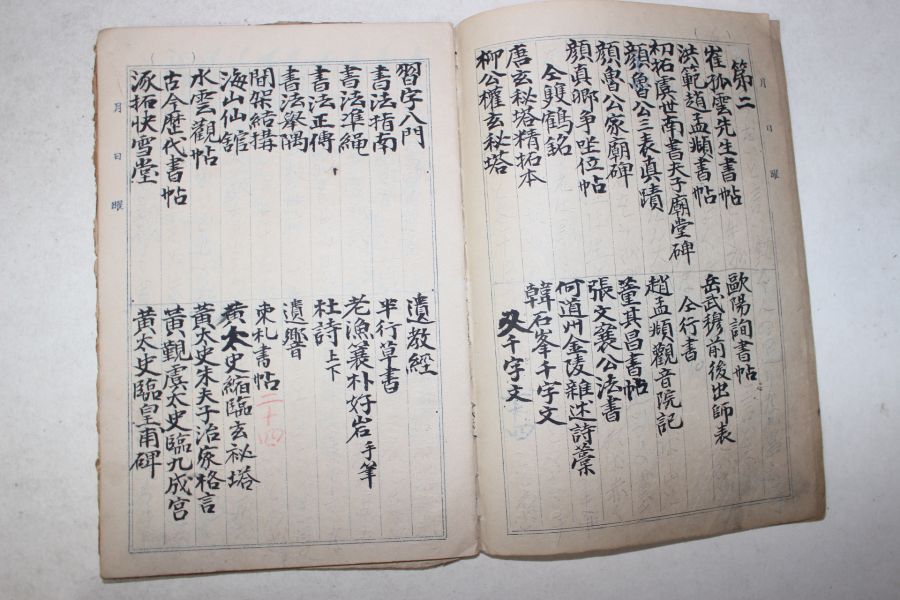 月 日 曜
第二
崔孤雲先生書帖
洪範趙孟頫書帖
初拓虞世南書夫子廟堂碑
顔魯公三表真蹟
顔魯公家廟碑
顔真卿争坐位帖
仝雙鶴銘
唐玄秘塔精拓本
柳公權玄秘塔
歐陽詢書帖
岳武穆前後出師表
仝行書
趙孟頫觀音院記
董其昌書帖
張文襄公法書
何道州金陵雜述詩藁
韓石峯千字文
又千字文
習字入門
書法指南
書法準繩
書法正傳
書法舉隅
間架結構
海山仙舘
水雲觀帖
古今歷代書帖
涿拓快雪堂
遺教經
半行草書
老漁蓑朴好岩手筆
杜詩上下
遺響
束札書帖二十四
黄太史縮臨玄秘塔
黄太史朱夫子治家格言
黄觀虞太史臨九成宮
黄太史臨皇甫碑
月 日 曜